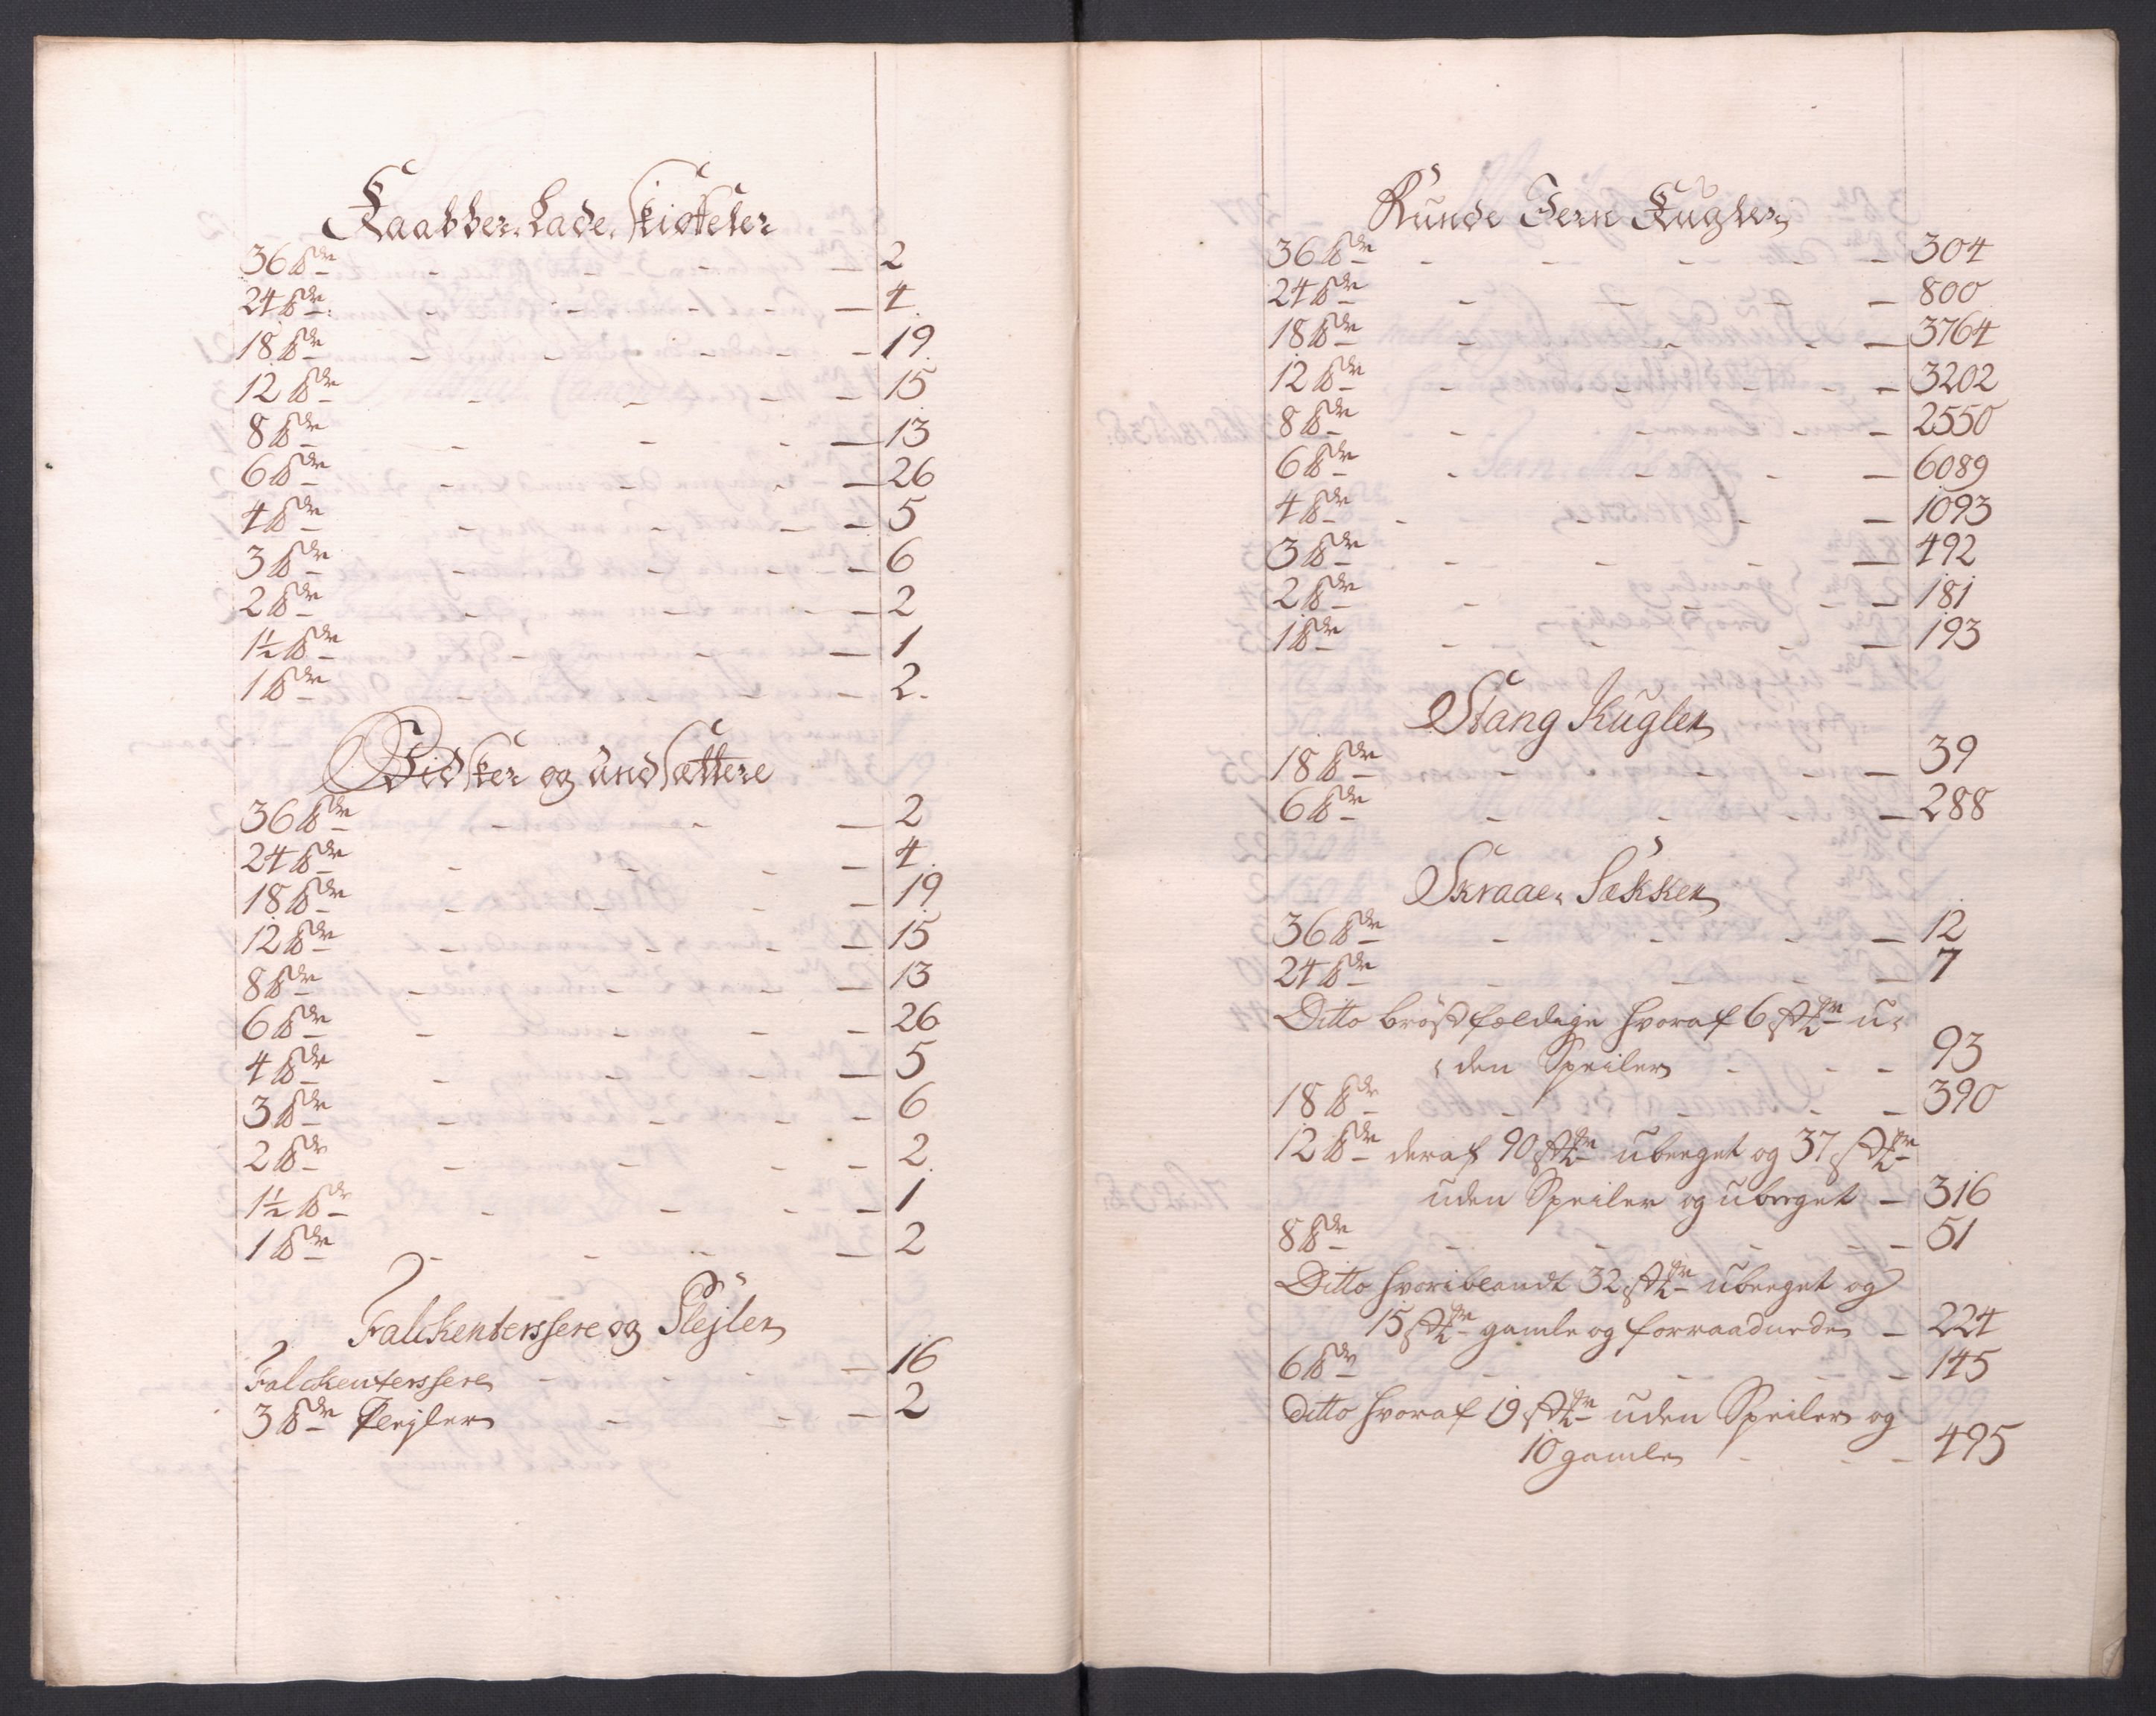 Kaabber Lade Skioffeler
36 ℔dr - - - - 2
24 ℔dr - - - - 4.
18 ℔dr - - - - 19.
12 ℔dr - - - - 15
8 ℔dr - - - - 13
6 ℔dr - - - - 26
4 ℔dr - - - - 5
3 ℔dr - - - - 6
2 ℔dr - - - - 2
1½ ℔dr - - - - 1
1 ℔dr - - - - 2.
Vidsker og Andsættere
36 ℔dr - - - 2
24 ℔dr - - - - 4.
18 ℔dr - - - - 19.
12 ℔dr - - - - 15
8 ℔dr - - - - 13
6 ℔dr - - - - 26
4 ℔dr - - - - 5
3 ℔dr - - - - 6
2 ℔dr - - - - 2.
1½ ℔dr - - - - 1
1 ℔dr - - - - 2
Falckenterssere og Plejler
Falckenterssere - - - - 16
3 ℔dr Plejler - - - 2
Runde Jern Kugler
36 ℔dr - - - - - 304
24 ℔dr - - - - 800
18 ℔dr - - - - 3764
12 ℔dr - - - - 3202
8 ℔dr - - - - 2550
6 ℔dr - - - - 6089
4 ℔dr - - - - 1093
3 ℔dr - - - - 492
2 ℔dr - - - - 181
1 ℔dr - - - - 193
Stang Kugler
18 ℔dr - - - - 39
6 ℔dr - - - - 288
Skraae Sækker
36 ℔dr - - - - 12
24 ℔dr - - - 7
Ditto brøstfældige hvoraf 6 stkr u-
den Speiler - - - 93
18 ℔dr - - - - 390
12 ℔dr deraf 90 stkr ubeeget og 37 stkr
uden Speiler og ubeeget - 316
8 ℔dr - - - - - 51
Ditto hvoriblandt 32 stkr ubeeget og
15 stkr gamle og forraadnede - 224
6 ℔dr - - - - 145
ditto hvoraf 19 stkr uden Speiler og
10 gamle - - - 495